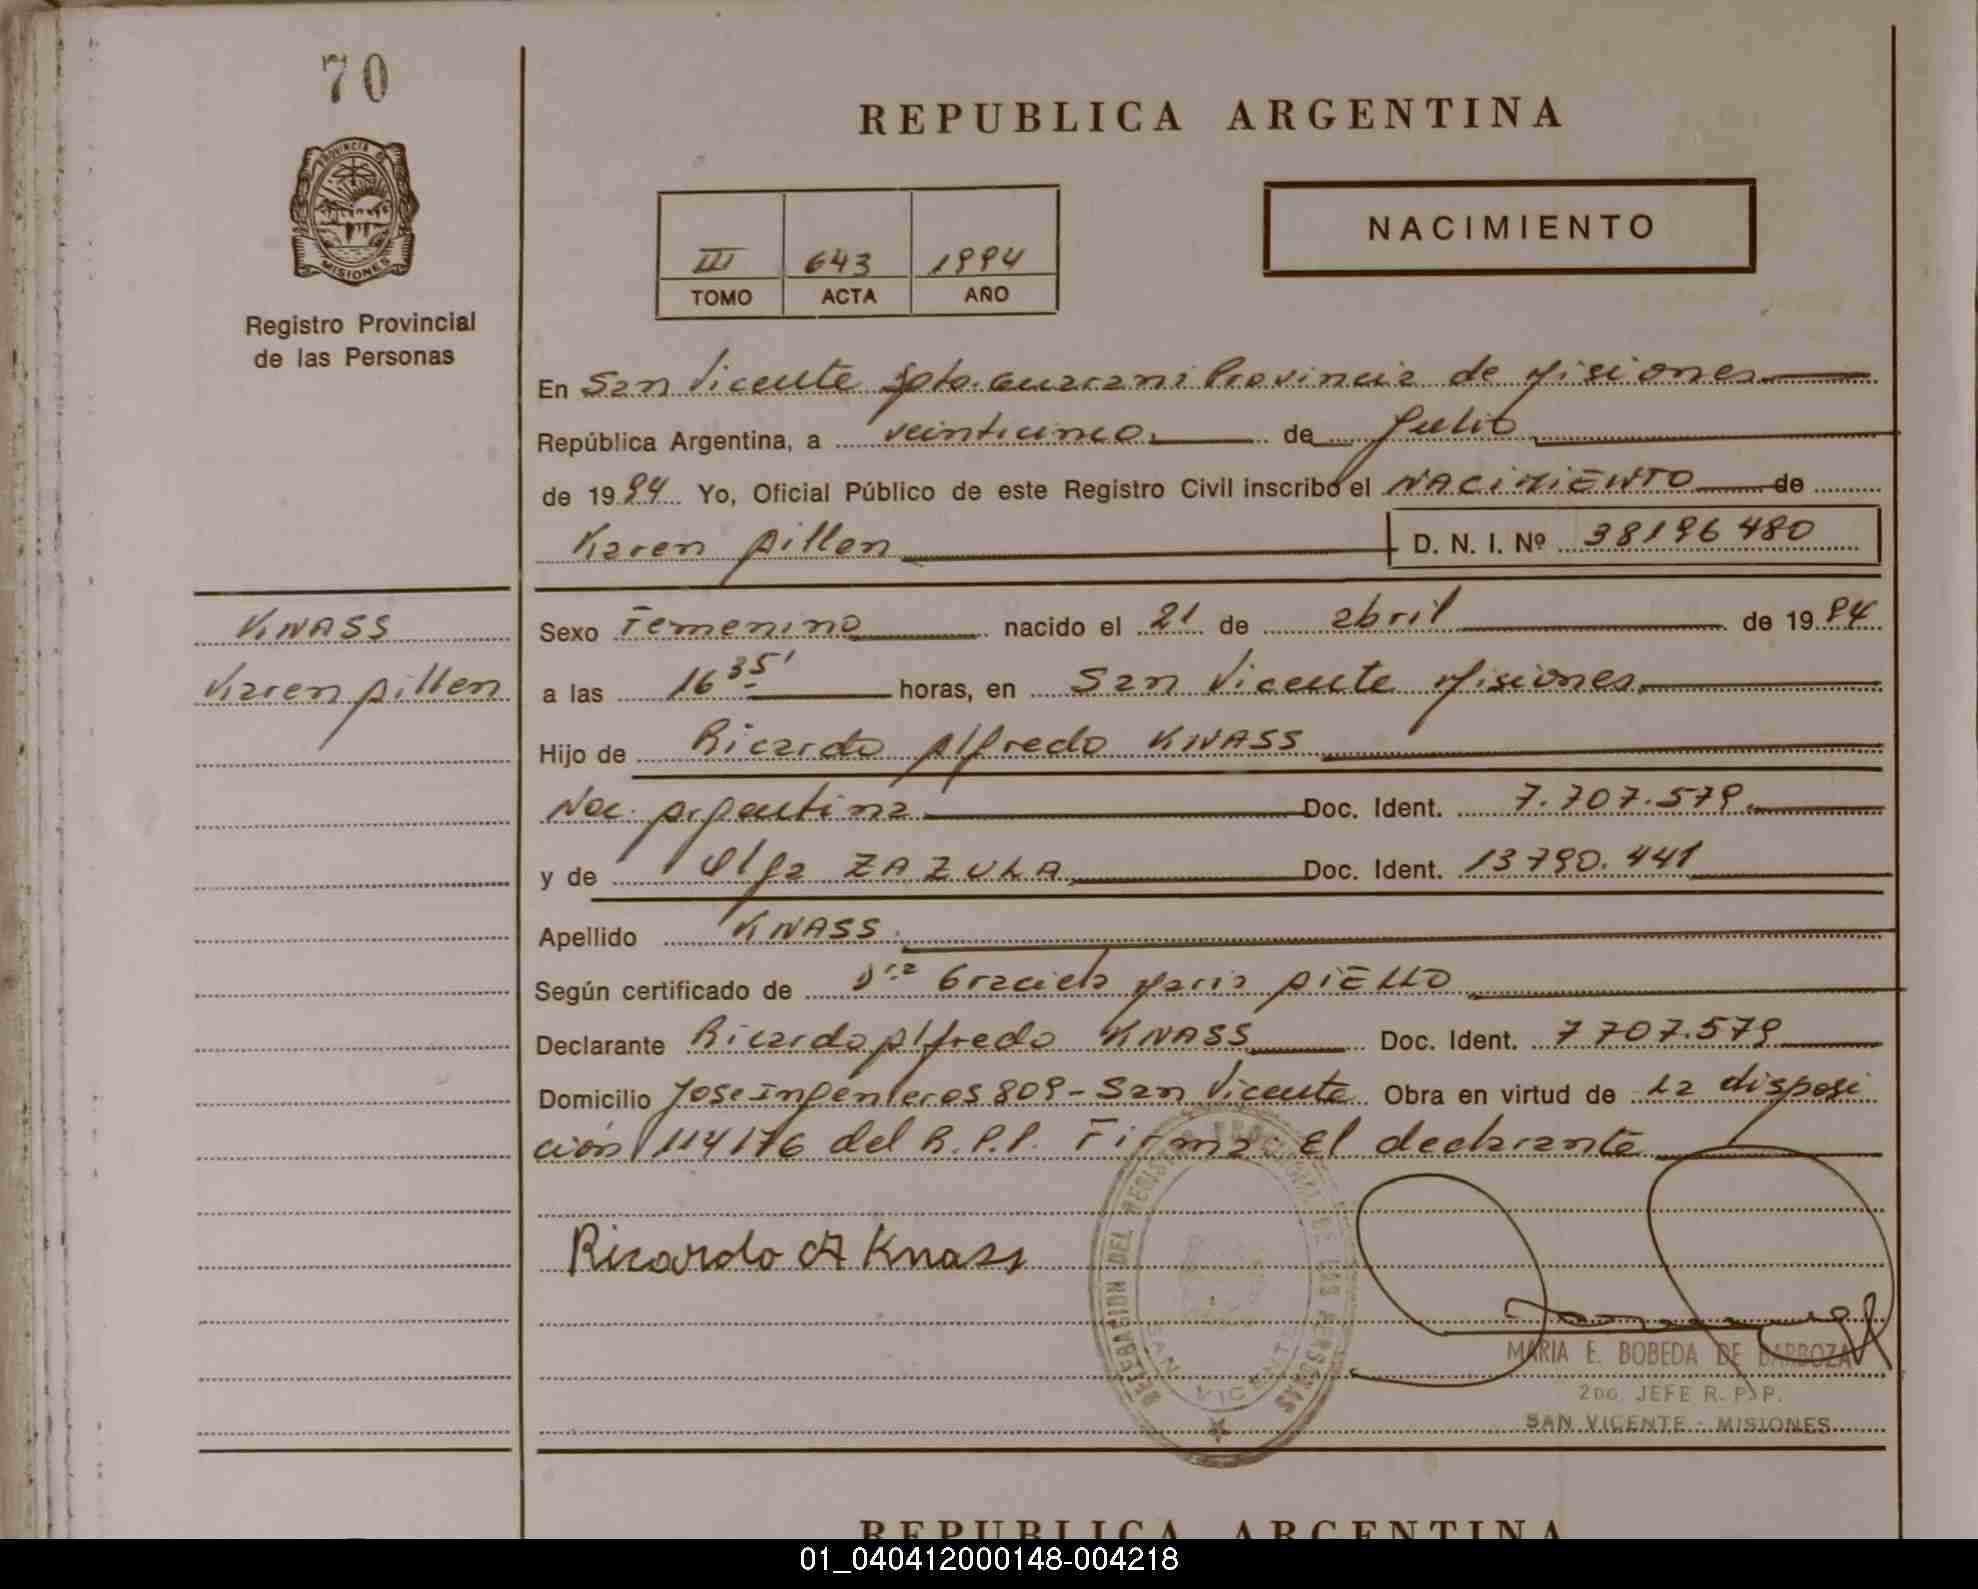 70
REPUBLICA ARGENTINA
PROVINCIA DE
MISIONES
NACIMIENTO
III 643 1994
TOMO ACTA AÑO
Registro Provincial
de las Personas
En San Vicente Dpto. Guarani Provincia de Misiones
República Argentina, a veinticinco de Julio
de 1994 Yo, Oficial Público de este Registro Civil inscribo el NACIMIENTO de
Karen Aillen D. N. I. Nº 38196480
KNASS
Karen Aillen
Sexo Femenino nacido el 21 de abril de 1994
a las 16 35' horas, en San Vicente Misiones
Hijo de Ricardo Alfredo KNASS
Nac. Argentina Doc. Ident. 7.707.579
y de Olga ZAZULA Doc. Ident. 13790.441
Apellido KNASS
Según certificado de Dra Graciela Maria AIELLO
Declarante Ricardo Alfredo KNASS Doc. Ident. 7707.579
Domicilio Jose Ingenieros 809 - San Vicente Obra en virtud de La disposi
ción 114176 del R.P.P. Firma: El declarante
Ricardo A Knass
DELEGACION DEL REGISTRO PROVINCIAL DE LAS PERSONAS
SAN VICENTE
MARIA E. BOBEDA DE BARBOZA
2DO. JEFE R. P. P.
SAN VICENTE - MISIONES
REPUBLICA ARGENTINA
01_040412000148-004218